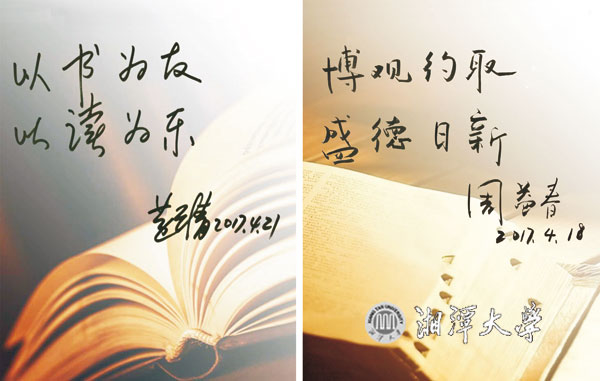 以书为友
以读为乐
黄云清2017.4.21
博观约取
盛德日新
周益春
2017.4.18
湘潭大学